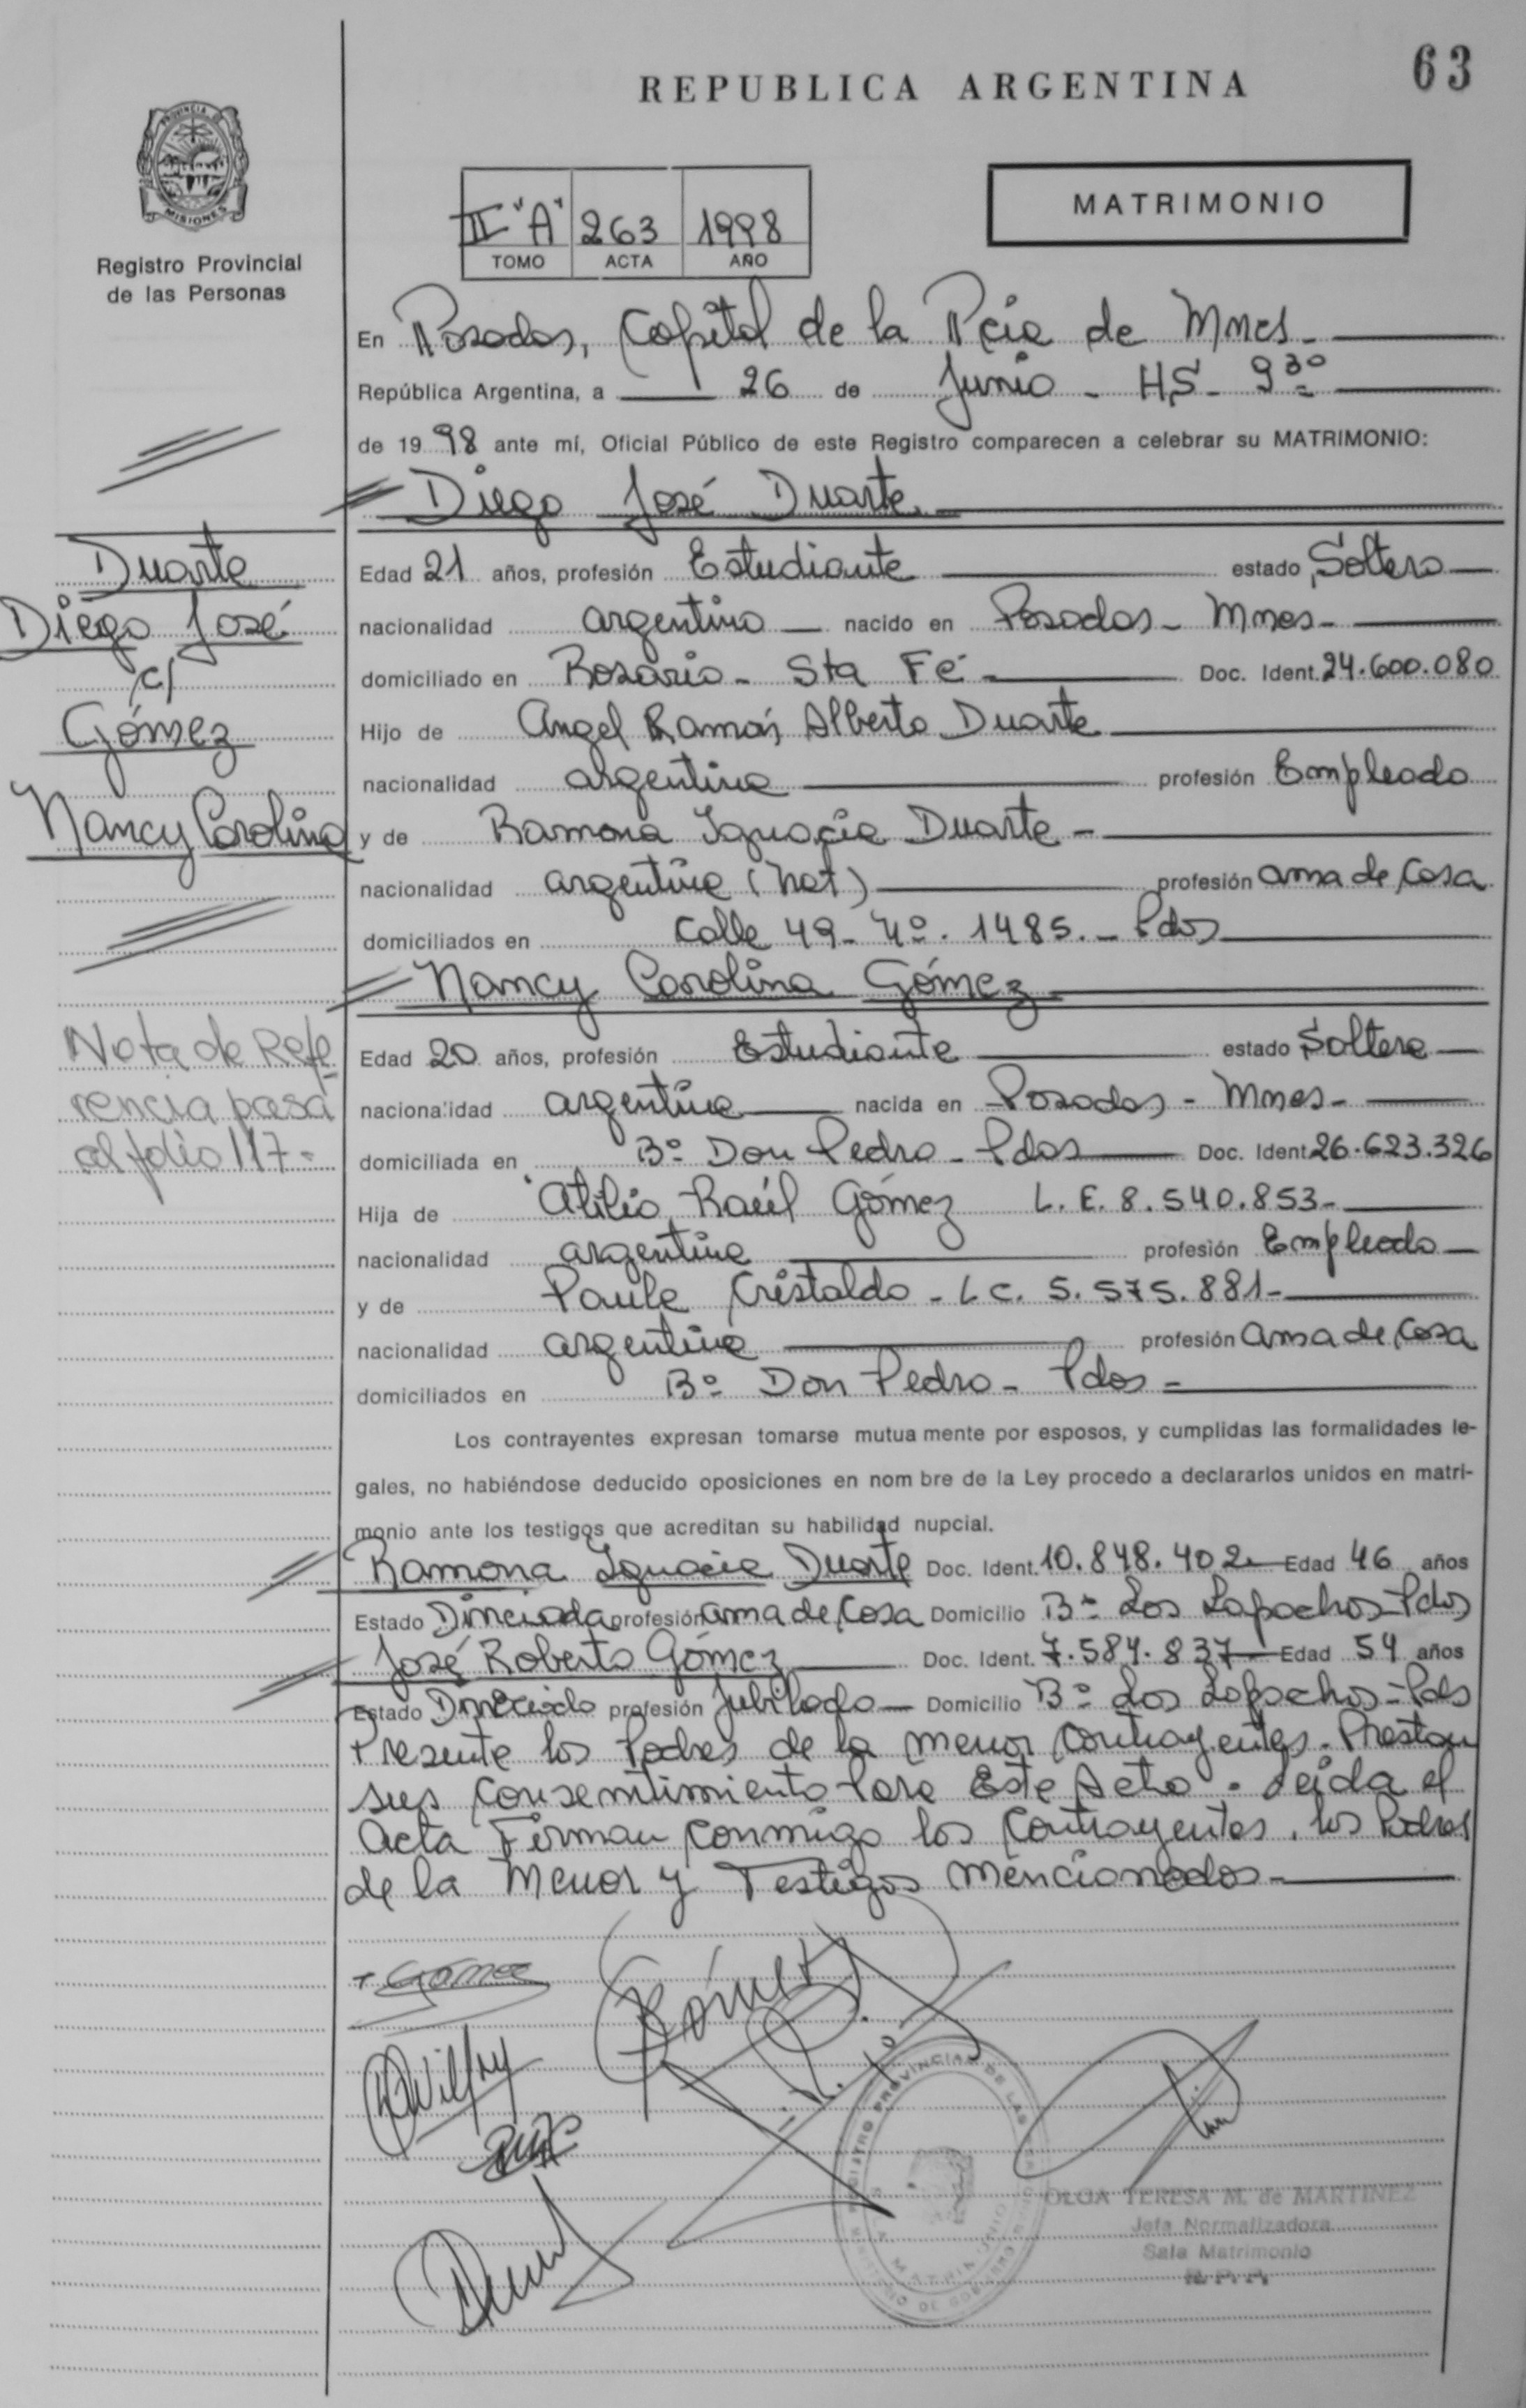 63
REPUBLICA ARGENTINA
PROVINCIA DE
MISIONES
Registro Provincial
de las Personas
II "A" 263 1998
TOMO ACTA AÑO
MATRIMONIO
En Posadas, Capital de la Pcia de Mnes.
República Argentina, a 26 de Junio - HS - 9 30
de 19 98 ante mí, Oficial Público de este Registro comparecen a celebrar su MATRIMONIO:
Diego José Duarte.
Edad 21 años, profesión Estudiante estado Soltero
nacionalidad argentino nacido en Posadas - Mnes -
domiciliado en Rosario - Sta Fé - Doc. Ident. 24.600.080
Hijo de Angel Ramón Alberto Duarte
nacionalidad argentina profesión Empleado
y de Ramona Ignacia Duarte -
nacionalidad argentina (nat) profesión ama de Casa
domiciliados en Calle 49 - Nº. 1485. - Pdas
Nancy Carolina Gómez
Edad 20 años, profesión Estudiante estado Soltera
nacionalidad argentina nacida en Posadas - Mnes -
domiciliada en Bº Don Pedro - Pdas Doc. Ident. 26.623.326
Hija de Atilio Raúl Gómez L. E. 8.540.853 -
nacionalidad argentina profesión Empleado
y de Paula Cristaldo - L C. 5.575.881 -
nacionalidad argentina profesión ama de Casa
domiciliados en Bº Don Pedro - Pdas -
Los contrayentes expresan tomarse mutua mente por esposos, y cumplidas las formalidades le-
gales, no habiéndose deducido oposiciones en nom bre de la Ley procedo a declararlos unidos en matri-
monio ante los testigos que acreditan su habilidad nupcial.
Ramona Ignacia Duarte Doc. Ident. 10.848.402 Edad 46 años
Estado Divorciada profesión ama de Casa Domicilio Bº Los Lapachos - Pdas
José Roberto Gómez Doc. Ident. 7.584.837 Edad 54 años
Estado Divorciado profesión Jubilado Domicilio Bº Los Lapachos - Pdas
Presente los Padres de la menor Contrayentes. Prestan
sus Consentimiento Para Este Acto. Leída el
Acta Firman Conmigo los Contrayentes, los Padres
de la Menor y Testigos mencionados -
Duarte
Diego José
c/
Gómez
Nancy Carolina
Nota de Refe
rencia pasa
al folio 117 -
Gomez
Gómez
REGISTRO PROVINCIAL DE LAS
OLGA TERESA M. de MARTINEZ
Jefa Normalizadora
Sala Matrimonio